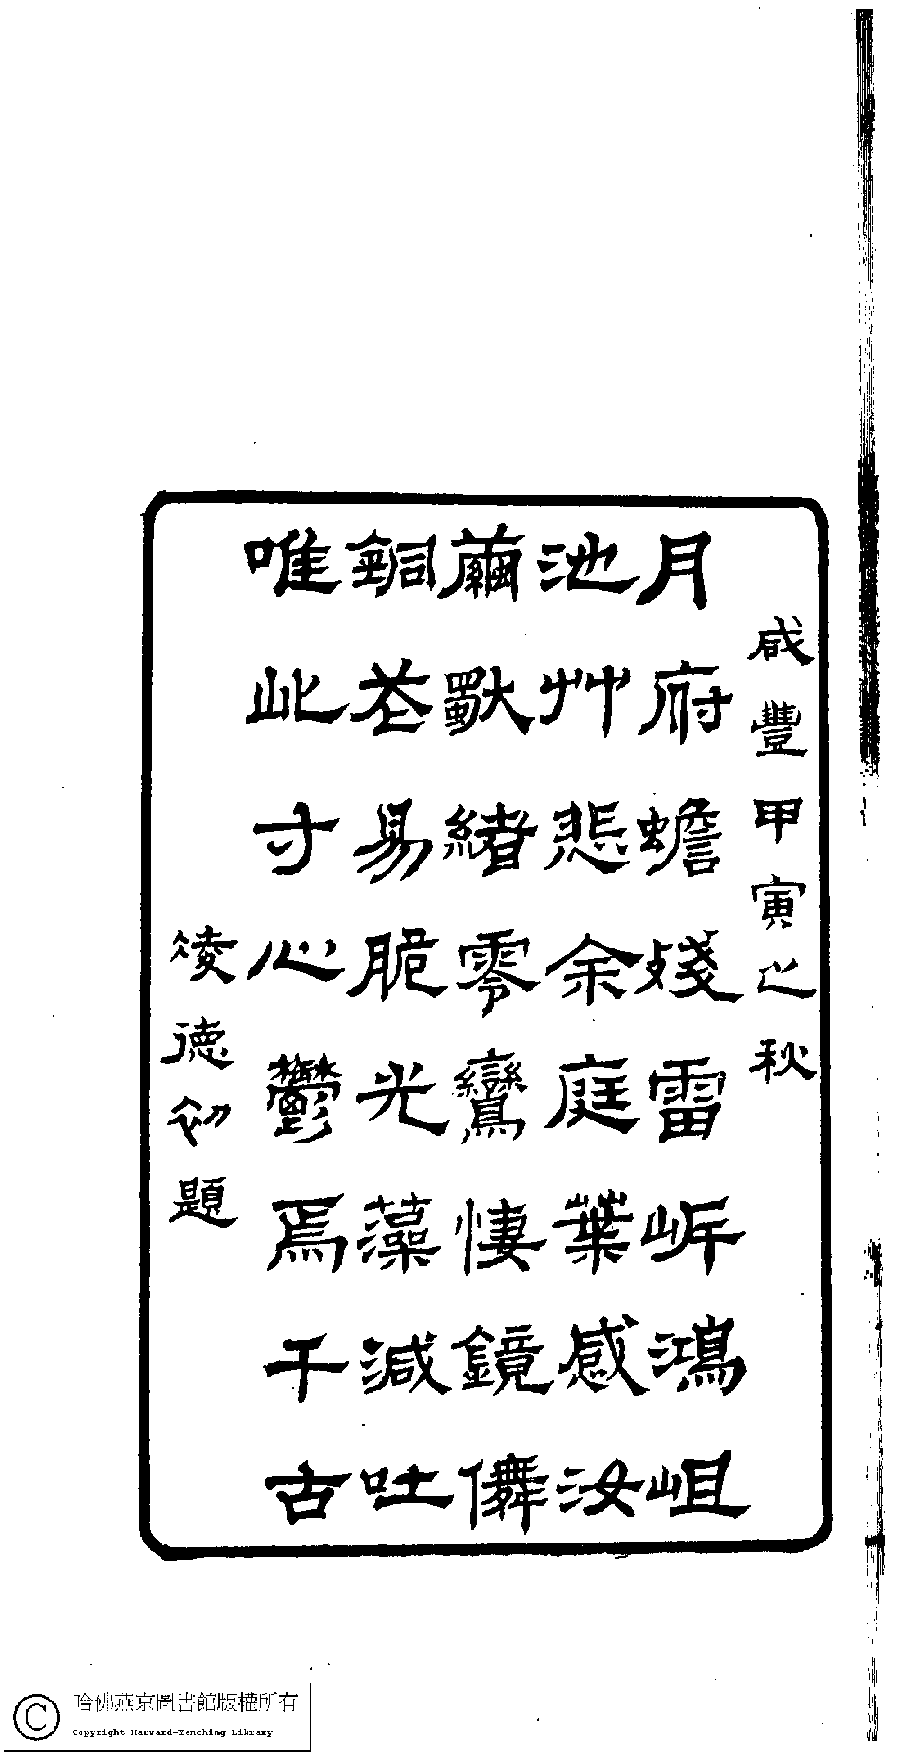 咸豐甲寅之秋
月府蟾殘雷岸鴻岨
池艸悲余庭葉感汝
繭獸緒零鸞悽鏡儛
銅苍易脆光藻減吐
唯此寸心鬱焉千古
德初題
哈佛燕京圖書館版權所有
Copyright Harvard-Yenching Library